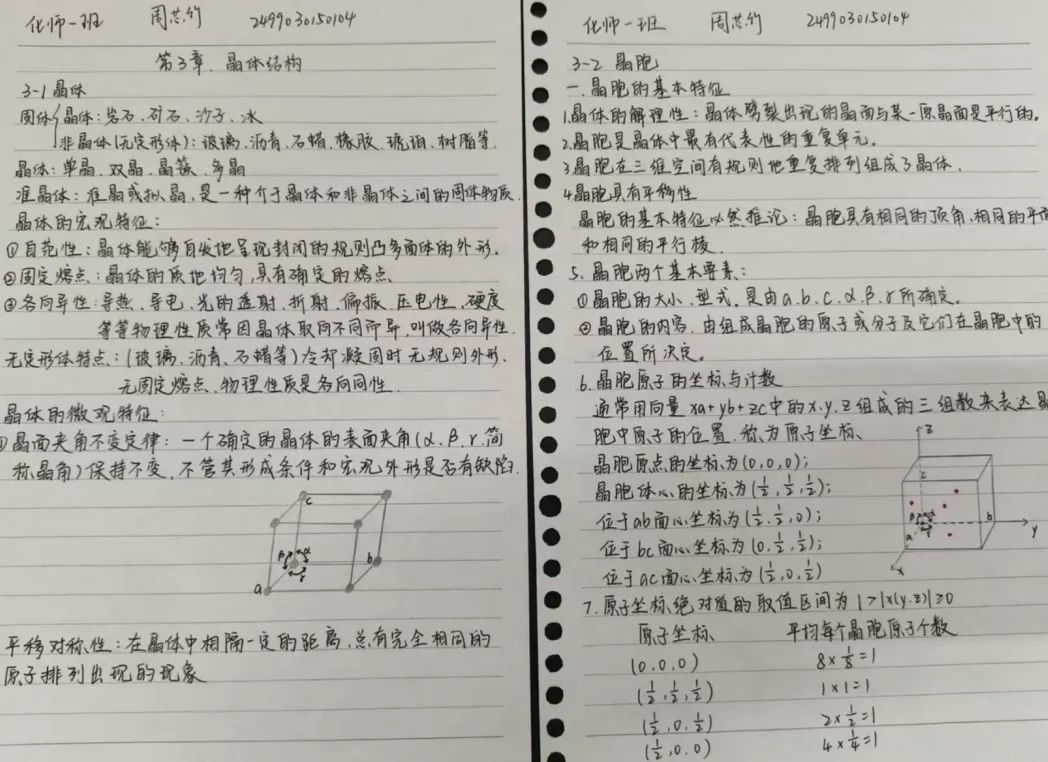 化师一班 周芯竹 2499030150104
第3章、晶体结构
3-1 晶体
固体 晶体:岩石、矿石、沙子、冰
非晶体(无定形体):玻璃、沥青、石蜡、橡胶、琥珀、树脂等.
晶体:单晶、双晶、晶簇、多晶
准晶体:准晶或拟晶,是一种介于晶体和非晶体之间的固体物质.
晶体的宏观特征:
①自范性:晶体能够自发地呈现封闭的规则凸多面体的外形.
②固定熔点:晶体的质地均匀,具有确定的熔点
③各向异性:导热、导电、光的透射、折射、偏振、压电性、硬度
等等物理性质常因晶体取向不同而异,叫做各向异性.
无定形体特点:(玻璃、沥青、石蜡等)冷却凝固时无规则外形、
无固定熔点、物理性质是各向同性.
晶体的微观特征:
①晶面夹角不变定律:一个确定的晶体的表面夹角(α、β、γ,简
称晶角)保持不变,不管其形成条件和宏观外形是否有缺陷.
c
β α
γ
b
a
平移对称性:在晶体中相隔一定的距离,总有完全相同的
原子排列出现的现象
化师一班 周芯竹 2499030150104
3-2 晶胞
一.晶胞的基本特征
1.晶体的解理性:晶体劈裂出现的晶面与某一原晶面是平行的.
2.晶胞是晶体中最有代表性的重复单元.
3.晶胞在三维空间有规则地重复排列组成了晶体.
4.晶胞具有平移性
晶胞的基本特征必然推论:晶胞具有相同的顶角、相同的平面
和相同的平行棱.
5.晶胞两个基本要素:
①晶胞的大小、型式.是由a.b.c.α.β.γ所确定。
②晶胞的内容.由组成晶胞的原子或分子及它们在晶胞中的
位置所决定。
6.晶胞原子的坐标与计数
通常用向量xa+yb+zc中的x.y.z组成的三组数来表达晶
胞中原子的位置.称为原子坐标、
晶胞原点的坐标为(0,0,0);
晶胞体心的坐标为(½,½,½);
位于ab面心坐标为(½,½,0);
位于bc面心坐标为(0,½,½);
位于ac面心坐标为(½,0,½)
z
c
β α
γ
a
b
y
x
7.原子坐标绝对值的取值区间为1>|x(y.z)|≥0
原子坐标 平均每个晶胞原子个数
(0,0,0) 8×⅛=1
(½,½,½) 1×1=1
(½,0,½) 2×½=1
(½,0,0) 4×¼=1